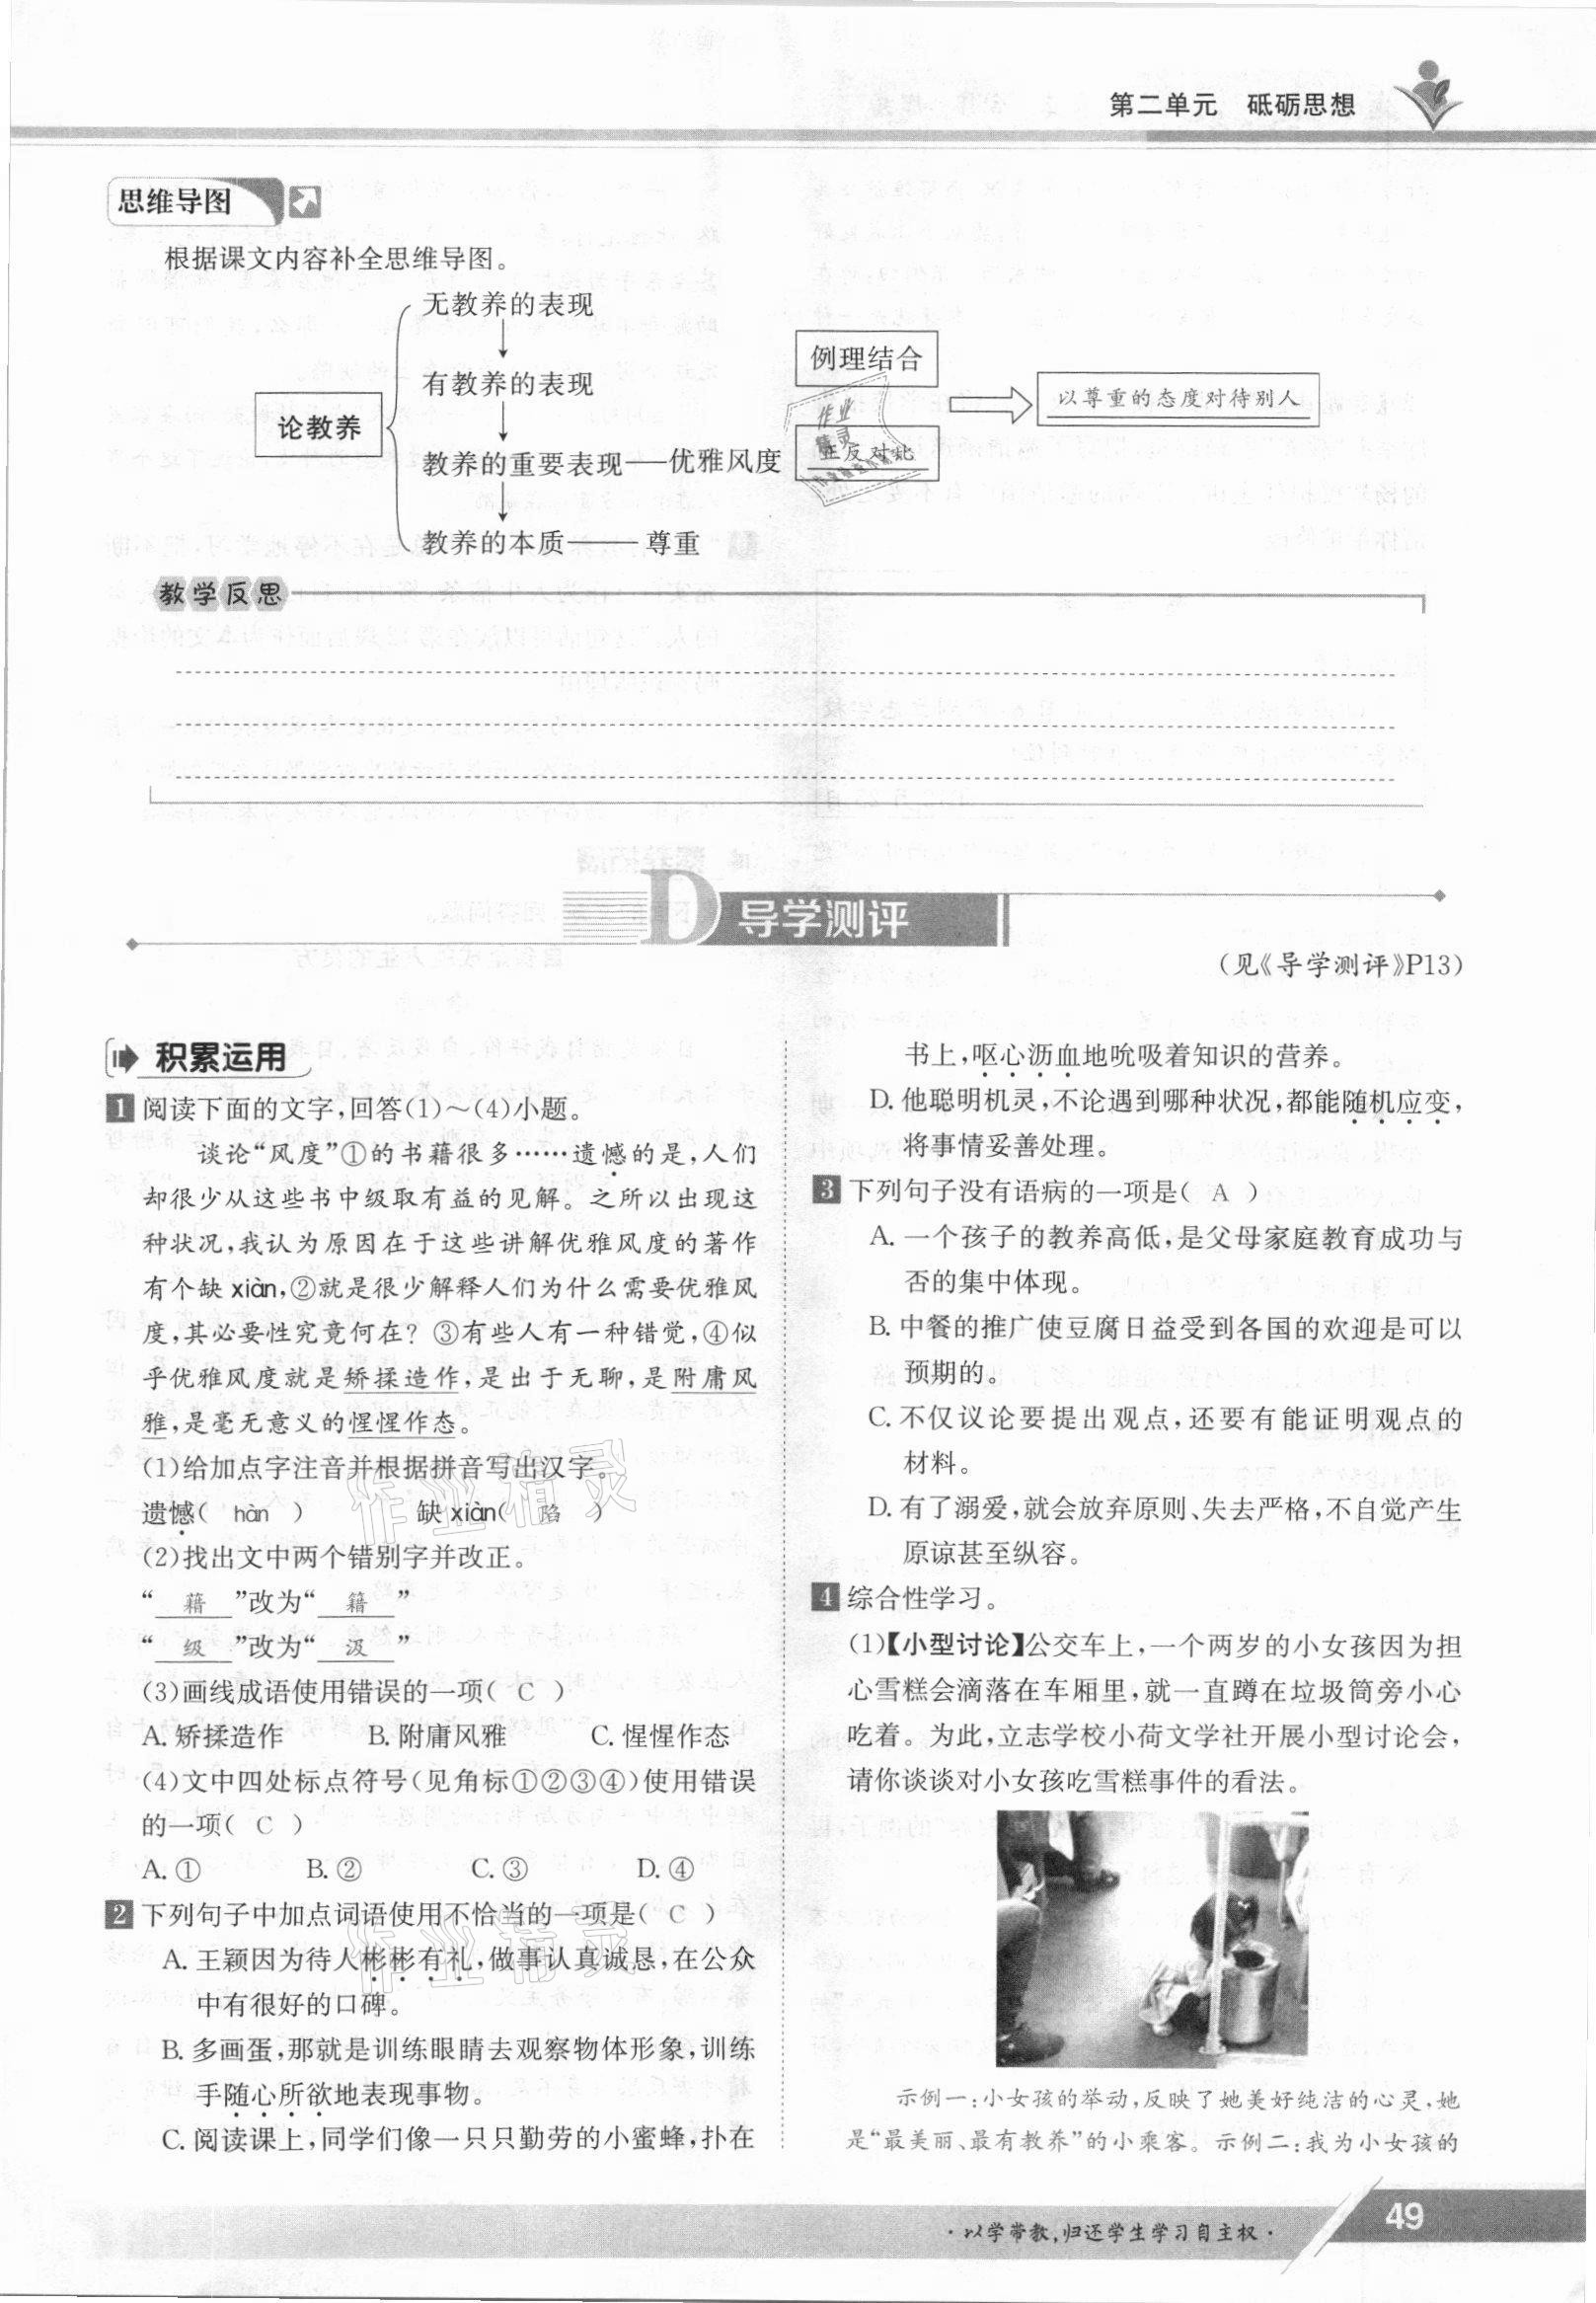 第二单元 砥砺思想
思维导图
根据课文内容补全思维导图。
论教养
无教养的表现
有教养的表现
教养的重要表现——优雅风度
教养的本质——尊重
例理结合
正反对比
以尊重的态度对待别人
教学反思
D 导学测评
(见《导学测评》P13)
积累运用
1 阅读下面的文字,回答(1)～(4)小题。
谈论“风度”①的书藉很多……遗憾的是,人们
却很少从这些书中级取有益的见解。之所以出现这
种状况,我认为原因在于这些讲解优雅风度的著作
有个缺 xiàn,②就是很少解释人们为什么需要优雅风
度,其必要性究竟何在？③有些人有一种错觉,④似
乎优雅风度就是矫揉造作,是出于无聊,是附庸风
雅,是毫无意义的惺惺作态。
(1)给加点字注音并根据拼音写出汉字。
遗憾( hàn ) 缺 xiàn( 陷 )
(2)找出文中两个错别字并改正。
“ 藉 ”改为“ 籍 ”
“ 级 ”改为“ 汲 ”
(3)画线成语使用错误的一项( C )
A. 矫揉造作 B. 附庸风雅 C. 惺惺作态
(4)文中四处标点符号(见角标①②③④)使用错误
的一项( C )
A. ① B. ② C. ③ D. ④
2 下列句子中加点词语使用不恰当的一项是( C )
A. 王颖因为待人彬彬有礼,做事认真诚恳,在公众
中有很好的口碑。
B. 多画蛋,那就是训练眼睛去观察物体形象,训练
手随心所欲地表现事物。
C. 阅读课上,同学们像一只只勤劳的小蜜蜂,扑在
书上,呕心沥血地吮吸着知识的营养。
D. 他聪明机灵,不论遇到哪种状况,都能随机应变,
将事情妥善处理。
3 下列句子没有语病的一项是( A )
A. 一个孩子的教养高低,是父母家庭教育成功与
否的集中体现。
B. 中餐的推广使豆腐日益受到各国的欢迎是可以
预期的。
C. 不仅议论要提出观点,还要有能证明观点的
材料。
D. 有了溺爱,就会放弃原则、失去严格,不自觉产生
原谅甚至纵容。
4 综合性学习。
(1)【小型讨论】公交车上,一个两岁的小女孩因为担
心雪糕会滴落在车厢里,就一直蹲在垃圾筒旁小心
吃着。为此,立志学校小荷文学社开展小型讨论会,
请你谈谈对小女孩吃雪糕事件的看法。
示例一:小女孩的举动,反映了她美好纯洁的心灵,她
是“最美丽、最有教养”的小乘客。示例二:我为小女孩的
·以学带教,归还学生学习自主权·
49
作业精灵
作业精灵
作业精灵